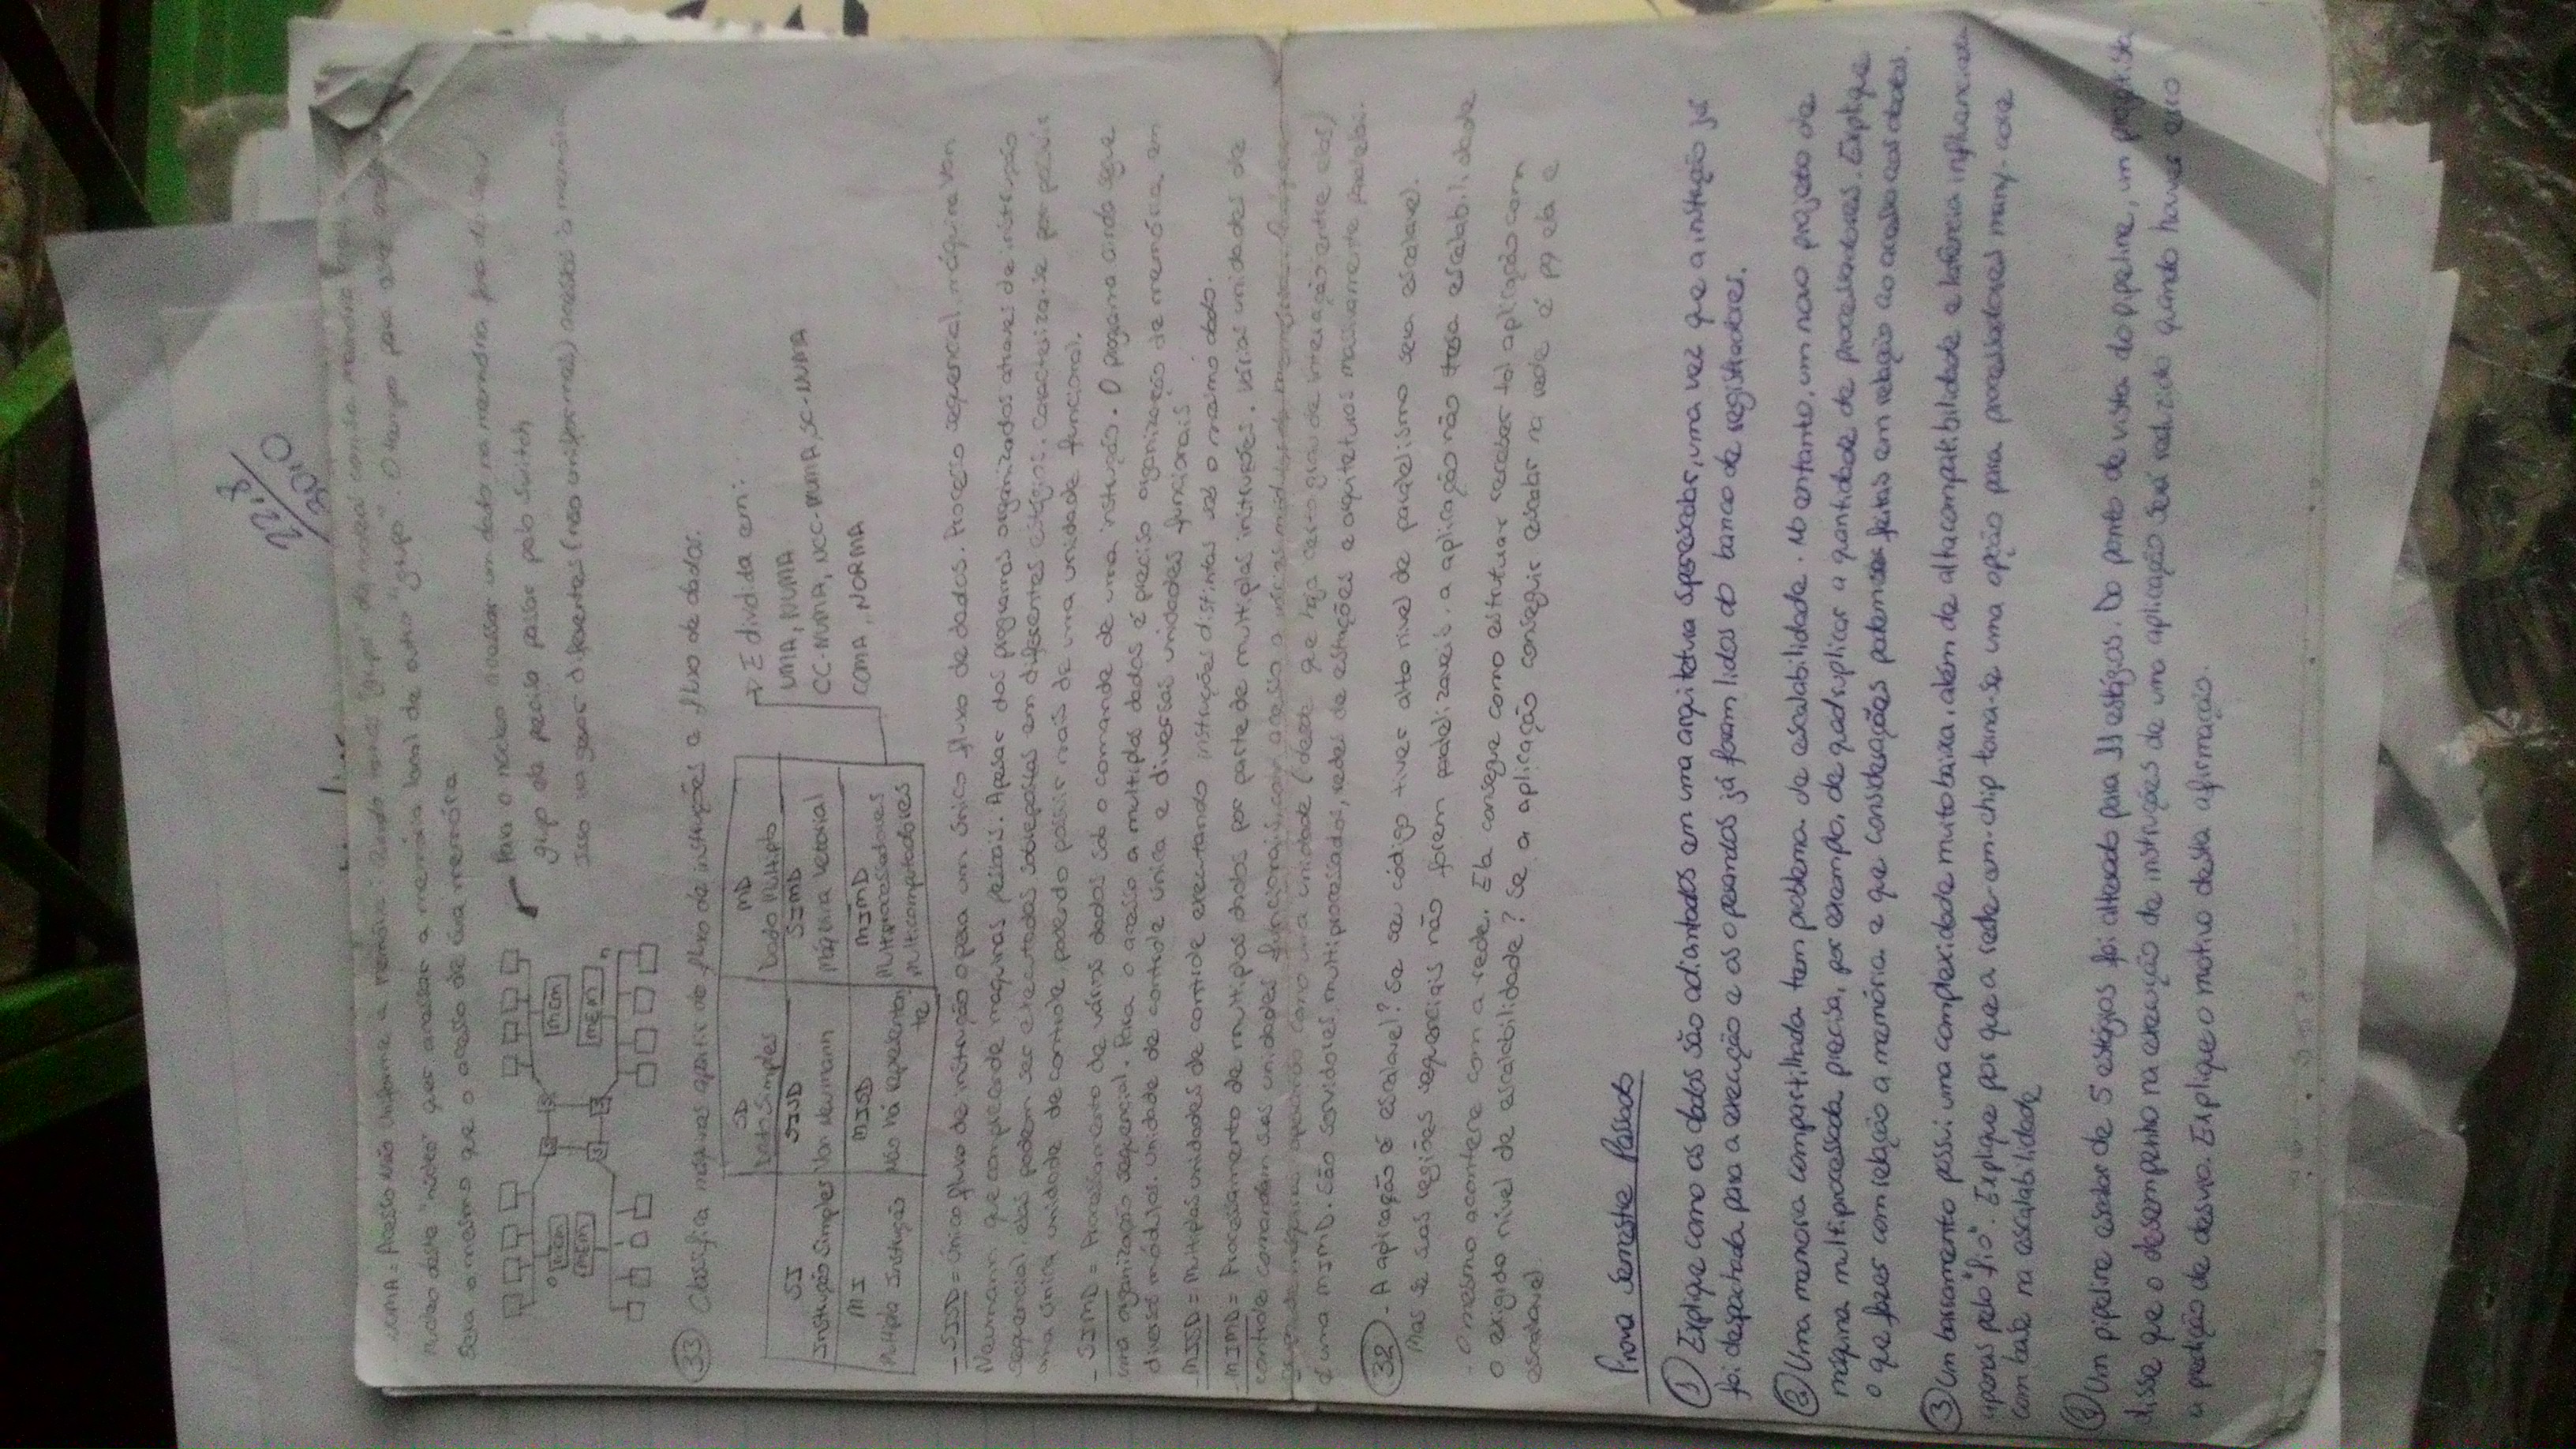 22,8
30,0
NUMA = Acesso não uniforme a memória. Quando temos "grupos" de
núcleo deste "núcleo" quer acessar a memória local de outro "grupo". O tempo para este
Sera o mesmo que o acesso de sua memória
Para o núcleo acessar um dado na memória fora do seu
grupo ele precisa passar pelo Switch
Isso vai gerar diferentes (não uniformes) acessos à memória
MEM MEM
MEM MEM
33 Classifica máquinas apartir do fluxo de instruções e fluxo de dados.
SD MD
Dado Simples Dado Múltiplo
SI SISD SIMD
Instrução Simples Von Neumann Máquina Vetorial
MI MISD MIMD
Multipla Instrução Não há representan Multiprocessadores
te Multicomputadores
→ E dividida em:
UMA, NUMA
CC-NUMA, NCC-NUMA, SC-NUMA
COMA, NORMA
- SISD = único fluxo de instrução opera um único fluxo de dados. Processo sequencial, máquina Von
Neumann que compreende maquinas pessoais. Apesar dos programas organizados atraves de instrução
sequencial, elas podem ser executadas sobrepostas em diferentes estágios. Caracteriza-se por possuir
uma única unidade de controle, podendo possuir mais de uma unidade funcional.
- SIMD = Processamento de vários dados sob o comando de uma instrução. O programa ainda segue
uma organização sequencial. Para o acesso a multiplos dados é preciso organização de memória em
diversos módulos. Unidade de controle única e diversas unidades funcionais
- MISD = Multiplas unidades de controle executando instruções distintas sob o mesmo dado.
- MIMD = Processamento de multiplos dados por parte de multiplas instruções. Várias unidades de
controle comandam suas unidades funcionais, com acesso a vários módulos de memória.
operando como uma unidade (desde que haja certo grau de interação entre elas)
é uma MIMD. São servidores multiprocessados, redes de estações e arquiteturas massivamente paralelas.
32 - A aplicação é escalavel? Se seu código tiver alto nivel de paralelismo sera escalavel.
Mas se suas regiões sequenciais não forem paralelizaveis, a aplicação não tera escalabilidade
- O mesmo acontece com a rede. Ela consegue como estrutura receber tal aplicação com
o exigido nível de escalabilidade? Se a aplicação conseguir escalar na rede é pq ela e
escalavel.
Prova Semestre Passado
1 Explique como os dados são adiantados em uma arquitetura superescalar, uma vez que a instrução já
foi despachada para a execução e os operandos já foram lidos do banco de registradores.
2 Uma memoria compartilhada tem problema de escalabilidade. No entanto, um novo projeto de
máquina multiprocessada precisa, por exemplo, de quadruplicar a quantidade de processadores. Explique
o que fazer com relação a memória e que considerações podem ser feitas em relação ao acesso aos dados.
3 Um barramento possui uma complexidade muito baixa, além de alta compatibilidade e latência influenciada
apenas pelo "fio". Explique por que a rede-em-chip torna-se uma opção para processadores many-core
com base na escalabilidade
4 Um pipeline escalar de 5 estágios foi alterado para 11 estágios. Do ponto de vista do pipeline, um projetista
disse que o desempenho na execução de instruções de uma aplicação será reduzido quando houver erro
a predição de desvio. Explique o motivo desta afirmação.